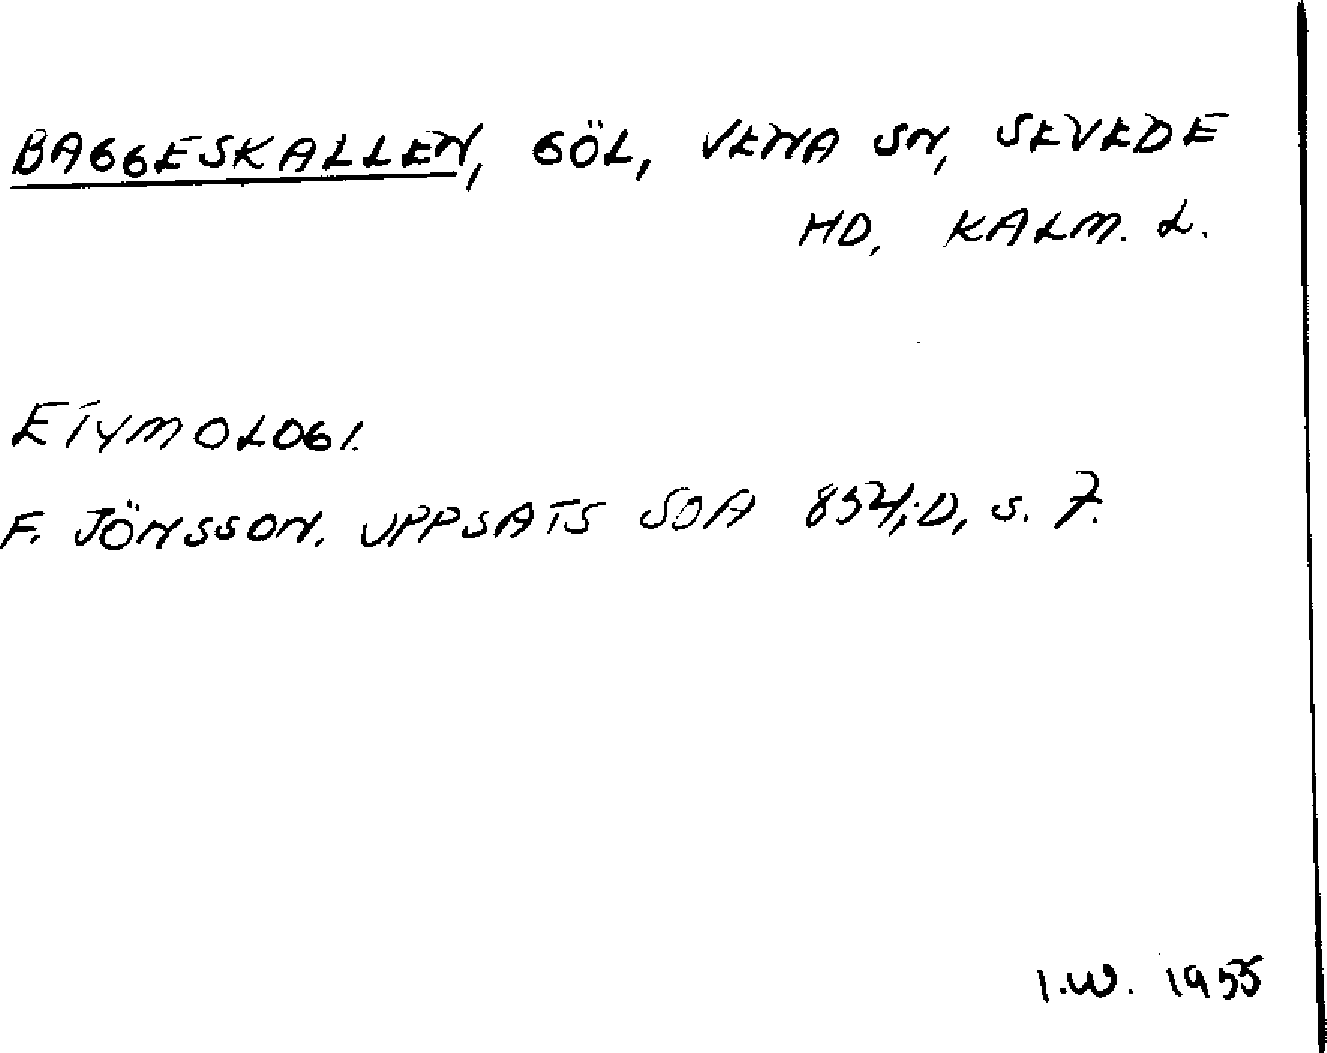 BAGGESKALLEN, GÖL, VENA SN, SEVEDE
HD, KALM. L.
ETYMOLOGI.
F. JÖNSSON. UPPSATS SOA 854;D, s. 7.
I.W. 1955